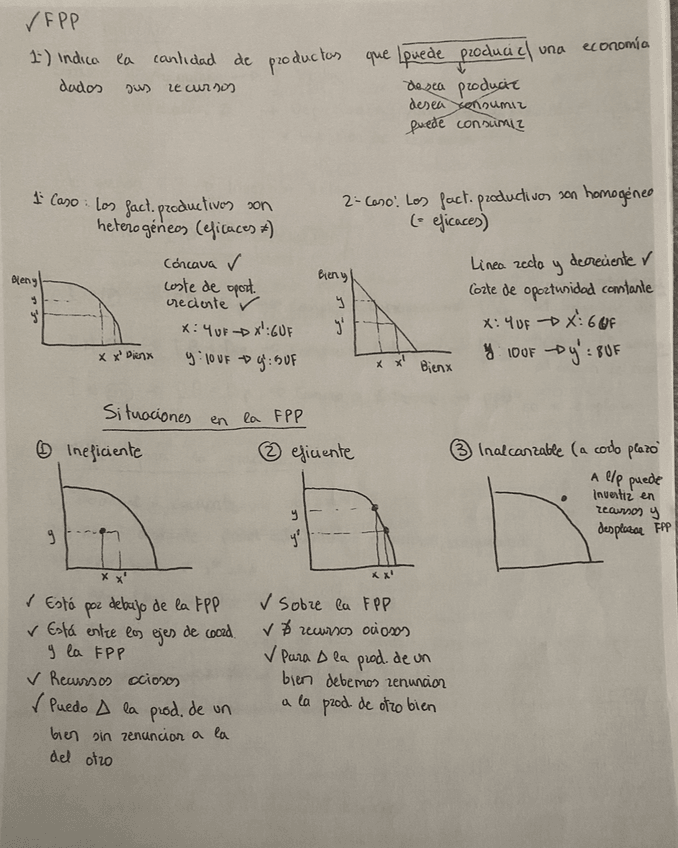 ✓ FPP
1-) Indica la cantidad de productos que puede producir una economía
dados sus recursos
desea producir
desea consumir
puede consumir
1- Caso: Los fact. productivos son
heterogéneos (eficaces ≠)
2- Caso: Los fact. productivos son homogéneo
(= eficaces)
Bien y
y
y'
x x' Bien x
Cóncava ✓
Coste de oport.
creciente ✓
x: 4UF → x': 6UF
y: 10UF → y': 5UF
Bien y
y
y'
x x' Bien x
Línea recta y decreciente ✓
Coste de oportunidad constante
x: 4UF → x': 6UF
y: 10UF → y': 8UF
Situaciones en la FPP
① Ineficiente
y
x x'
✓ Está por debajo de la FPP
✓ Está entre los ejes de coord
y la FPP
✓ Recursos ociosos
✓ Puedo Δ la prod. de un
bien sin renuncion a la
del otro
② eficiente
y
y'
x x'
✓ Sobre la FPP
✓ ∄ recursos ociosos
✓ Para Δ la prod. de un
bien debemos renuncion
a la prod. de otro bien
③ Inalcanzable (a codo plazo
A l/p puede
invertir en
recursos y
desplazar FPP